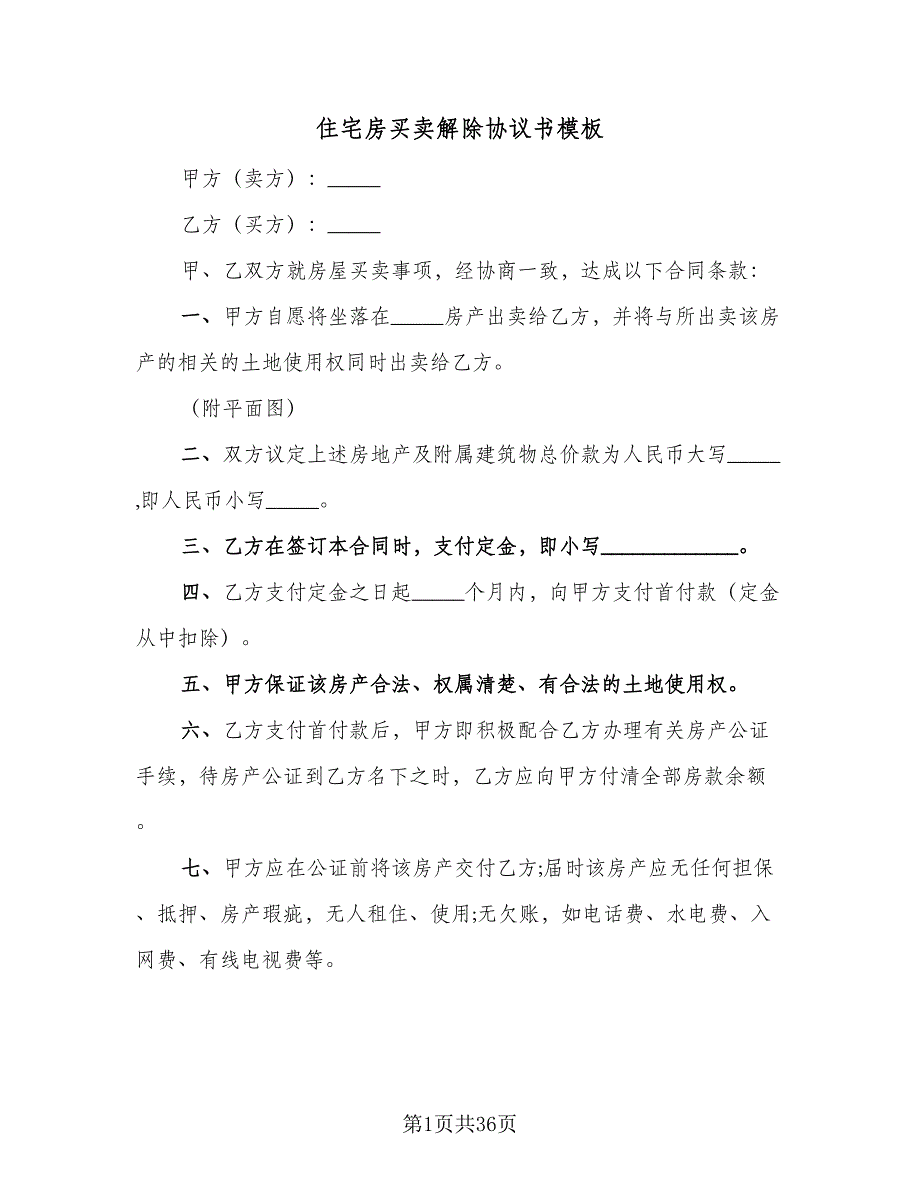 住宅房买卖解除协议书模板
甲方（卖方）：_____
乙方（买方）：_____
甲、乙双方就房屋买卖事项，经协商一致，达成以下合同条款：
一、甲方自愿将坐落在_____房产出卖给乙方，并将与所出卖该房
产的相关的土地使用权同时出卖给乙方。
（附平面图）
二、双方议定上述房地产及附属建筑物总价款为人民币大写_____
,即人民币小写_____。
三、乙方在签订本合同时，支付定金，即小写_____________。
四、乙方支付定金之日起_____个月内，向甲方支付首付款（定金
从中扣除）。
五、甲方保证该房产合法、权属清楚、有合法的土地使用权。
六、乙方支付首付款后，甲方即积极配合乙方办理有关房产公证
手续，待房产公证到乙方名下之时，乙方应向甲方付清全部房款余额
。
七、甲方应在公证前将该房产交付乙方;届时该房产应无任何担保
、抵押、房产瑕疵，无人租住、使用;无欠账，如电话费、水电费、入
网费、有线电视费等。
第1页共36页